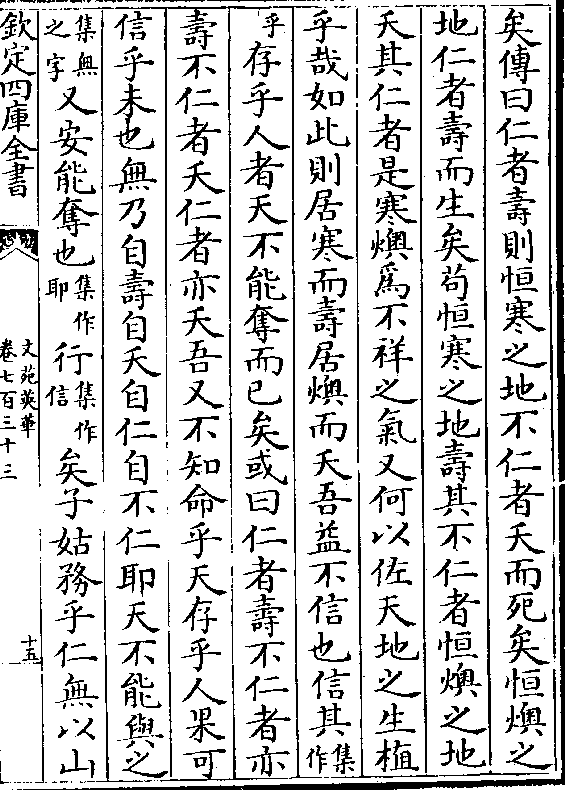 矣傳曰仁者壽則恒寒之地不仁者夭而死矣恒燠之
地仁者壽而生矣苟恒寒之地壽其不仁者恒燠之地
夭其仁者是寒燠爲不祥之氣又何以佐天地之生植
乎哉如此則居寒而壽居燠而夭吾益不信也信其集作
乎存乎人者天不能奪而已矣或曰仁者壽不仁者亦
壽不仁者夭仁者亦夭吾又不知命乎天存乎人果可
信乎未也無乃自壽自夭自仁自不仁耶天不能與之
集無之字又安能奪也集作耶行集作信矣子姑務乎仁無以山
欽定四庫全書
文苑英華
卷七百三十三
十五